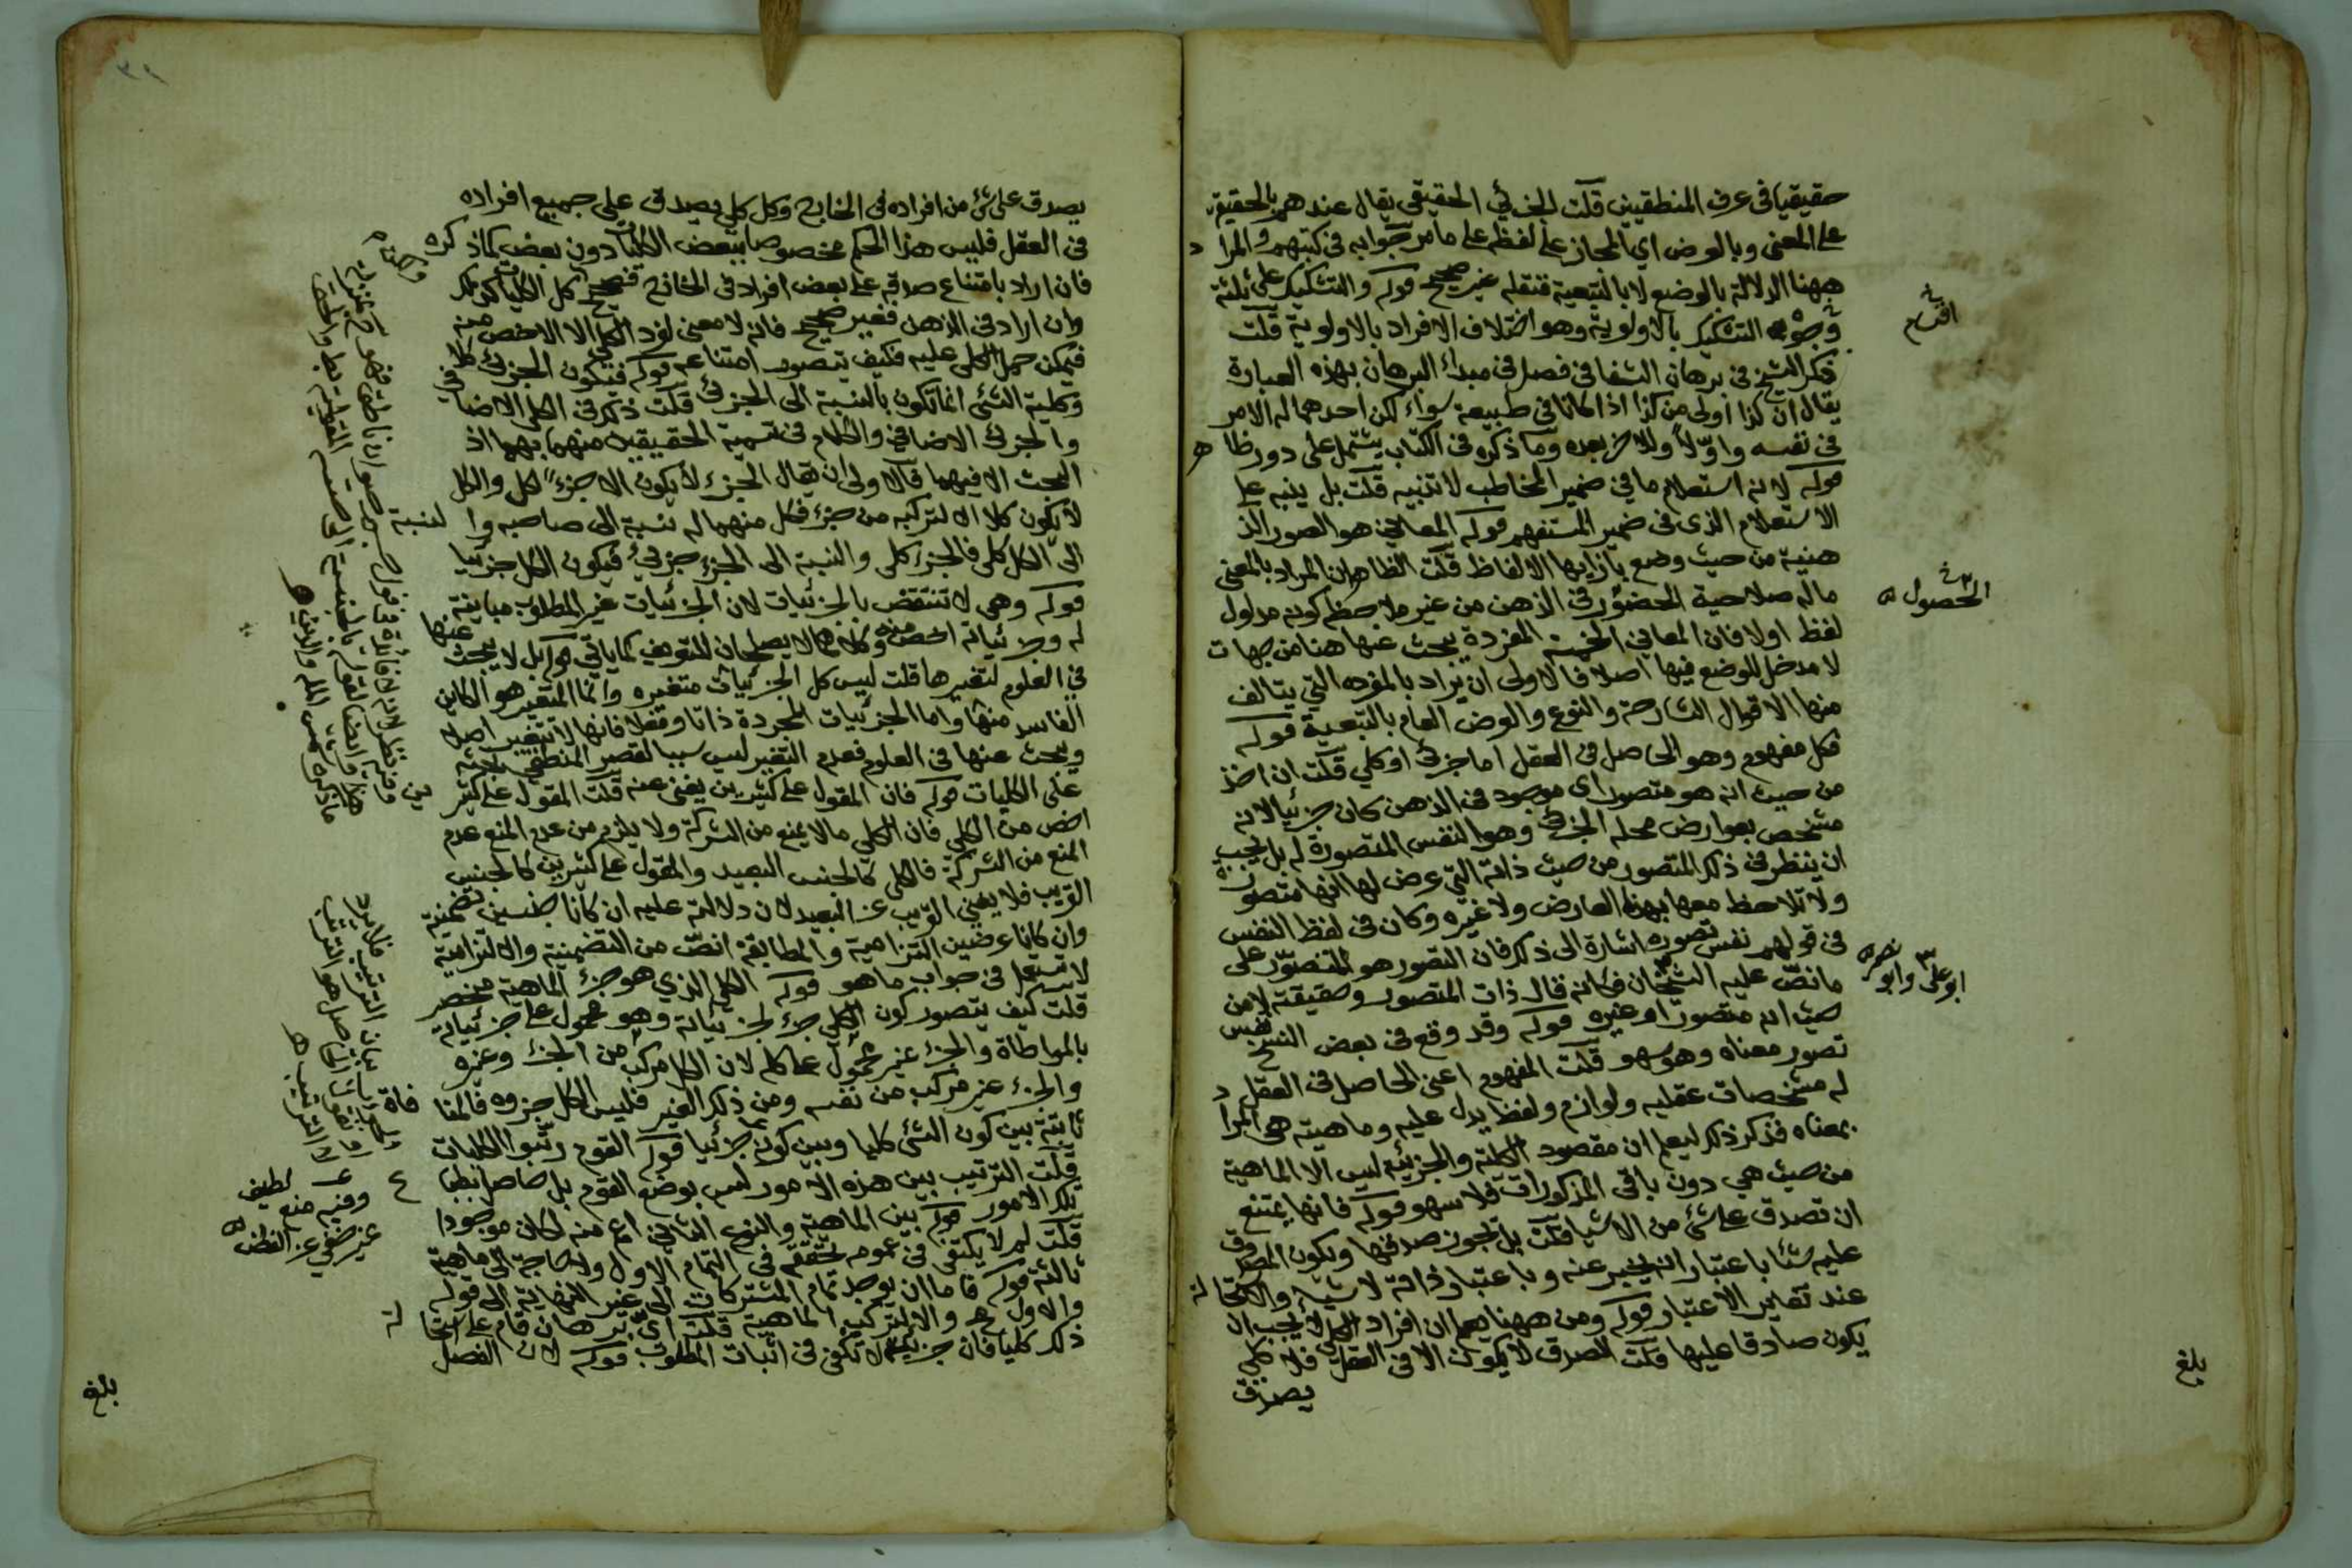 حقيقيا في عرف المنطقيين قلت الجزئي الحقيقي يقال عندهم بالحقيقة
على المعنى وبالعرض اي المجاز على لفظه على ما مر جوابه في كتبهم والمراد
ههنا الدلالة بالوضع لا بالتبعية فنقله غير صحيح قوله والتشكيك على ثلثة
وجوه التشكيك بالاولوية وهو اختلاف الافراد بالاولوية قلت
ذكر الشيخ في برهان الشفا في فصل في مبداء البرهان بهذه العبارة
يقال ان كذا اولى من كذا اذا كانا في طبيعة سواء لكن احدهما له الامر
في نفسه واولا وللاخر بعده وما ذكره في الكتاب يشتمل على دور ظاهر
قوله لانه استعلام ما في ضمير المخاطب لا تنبيه قلت بل ينبه على
الاستعلام الذى في ضمير المستفهم قوله المعاني هو الصور الذ
هنية من حيث وضع بازايها الالفاظ قلت الظاهر ان المراد بالمعنى
ماله صلاحية الحضور في الذهن من غير ملاحظة كونه مدلول
لفظ اولا فان المعاني الخمسة المفردة يبحث عنها هنا من جهات
لا مدخل للوضع فيها اصلا فالاولى ان يراد بالمفرده التي يتالف
منها الاقوال الشارحة والنوع والعرض العام بالتبعية قوله
فكل مفهوم وهو الحاصل في العقل اما جزئى او كلي قلت ان اخذ
من حيث انه هو متصور اى موجود في الذهن كان جزئيا لانه
متشخص بعوارض محله الجزئي وهو النفس المتصورة له بل يجب
ان ينظر في ذلك المتصور من حيث ذاته التي عرض لها انها متصورة
ولا تلاحظ معها بهذا العارض ولا غيره وكان في لفظ النفس
في قولهم نفس تصوره اشارة الى ذلك فان التصور هو المتصور على
ما نص عليه الشيخان فكانه قال ذات المتصور وحقيقته لا من
حيث انه متصور او غيره قوله وقد وقع في بعض النسخ نفس
تصور معناه وهو سهو قلت المفهوم اعنى الحاصل في العقل
له مشخصات عقليه ولوازم ولفظ يدل عليه وماهيته هي المراد
بمعناه فذكر ذلك ليعلم ان مقصود الكلية والجزئية ليس الا الماهية
من حيث هي دون باقي المذكورات فلا سهو قوله فانها يمتنع
ان تصدق على شئ من الاشيا قلت بل يجوز صدقها ويكون المصدوق
عليه شئا باعتبار انه يخبر عنه وباعتبار ذاته لا شيئا والاستحالة
عند تغاير الاعتبار قوله ومن ههنا يعلم ان افراد الكلي لا يجب ان
يكون صادقا عليها قلت الصدق لا يكون الا في العقل فلا كلي
يصدق
اقسام
الحصول
ابو على وابو نصر
بلغ
يصدق على شئ من افراده في الخارج وكل كلي يصدق على جميع افراده
في العقل فليس هذا الحكم مخصوصا ببعض الكليات دون بعض كما ذكره
فان اراد بامتناع صدقه على بعض افراد في الخارج فصحيح كل الكليات كذلك
وان اراد في الذهن فغير صحيح فانه لا معنى لفرد الكلي الا الاخص منه
فيمكن حمل الكلي عليه فكيف يتصور امتناعه قوله فيكون الجزئي كلا
وكلية الشئ انما تكون بالنسبة الى الجزئي قلت ذلك في الكلي الاضافي
والجزئي الاضافي والكلام في تسمية الحقيقيين منهما بهما اذ
البحث الا فيهما فالاولى ان يقال الجزء لا يكون الا جزءا لكل والكل
لا يكون كلا الا لتركبه من جزء فكل منهما له نسبة الى صاحبه والنسبة
الى الكل كلي فالجزء كلي والنسبة الى الجزء جزئي فيكون الكل جزئيا
قوله وهي لا تنتقض بالجزئيات لان الجزئيات غير المطلوب مباينة
له وجزئياته اخص منه وكلاهما لا يصلحان للتعريف كما ياتي قوله بل لا يبحث عنها
في العلوم لتغيرها قلت ليس كل الجزئيات متغيره وانما المتغير هو الكاين
الفاسد منها واما الجزئيات المجردة ذاتا وفعلا فانها لا تتغير اصلا
ويبحث عنها في العلوم فعدم التغير ليس سببا لقصر المنطقي بحثه
على الكليات قوله فان المقول على كثيرين يغني عنه قلت المقول على كثيرين
اخص من الكلي فان الكلي ما لا يمنع من الشركة ولا يلزم من عدم المنع عدم
المنع من الشركة فالكلي كالجنس البعيد والمقول على كثيرين كالجنس
القريب فلا يغني القريب عن البعيد لان دلالته عليه ان كانا جنسين تضمنية
وان كانا عرضين التزامية والمطابقة انص من التضمنية والالتزامية
لا تستعمل في جواب ما هو قوله الكلي الذي هو جزء الماهية منحصر
قلت كيف يتصور كون الكلي جزء لجزئياته وهو محمول على جزئياته
بالمواطاة والجزء غير محمول على كله لان الكل مركب من الجزء وغيره
والجزء غير مركب من نفسه ومن ذلك الغير فليس الكل جزوه فالمنافاة
ثابتة بين كون الشئ كليا وبين كونه جزئيا قوله القوم رتبوا الكليات
قلت الترتيب بين هذه الامور ليس بوضع القوم بل حاصل بطبا ع
تلك الامور قوله بين الماهية والنوع الثاني اعم منه لكان موجودا
قلت لم لا يكتفي في عمومه لتحققه في التمام الاول ولا حاجة الى ماهية
ثالثة قوله فاما ان يوجد تمام المشتركات الى غير النهاية الى قوله
والاول محـ والا لتركب الماهية قلت اى برهان قام على استحالة
ذلك كليا فان جزئيته لا تكفي في اثبات المطلوب قوله لان الفصل
وفيه منع لطيف
غير خفي عن الفطن
بلغ